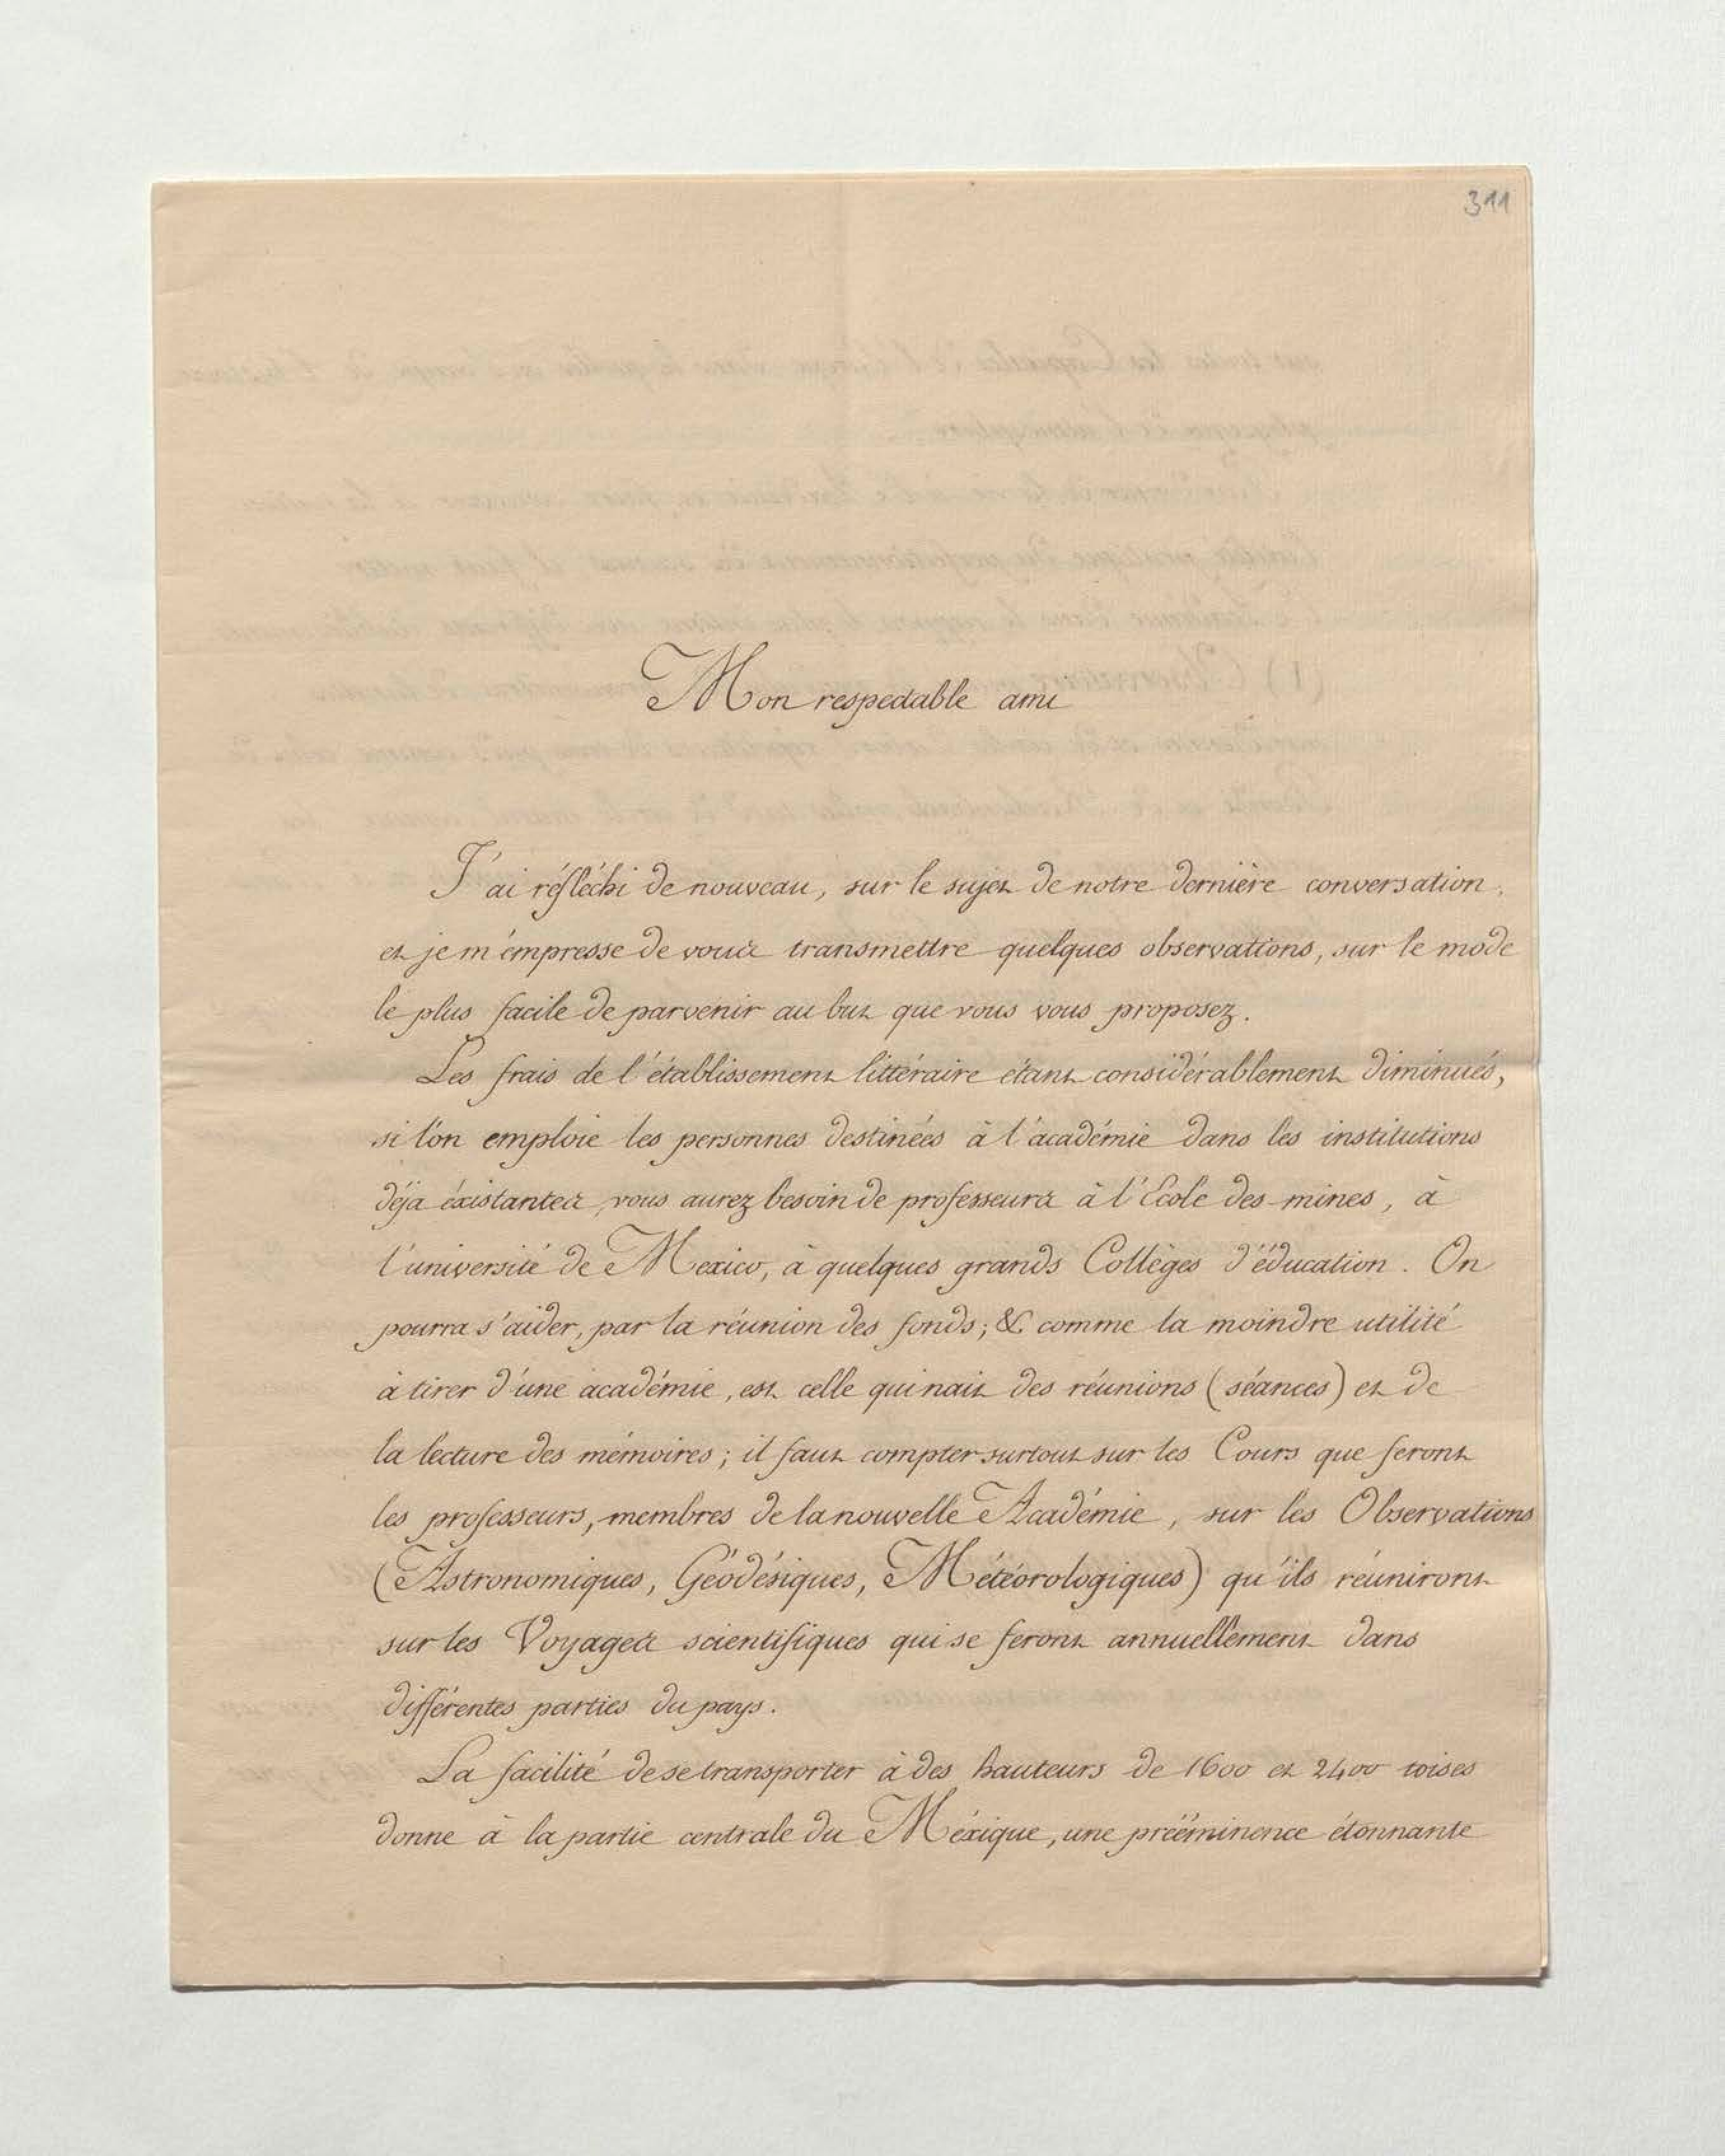 311
Mon respectable ami
J'ai réfléchi de nouveau, sur le sujet de notre dernière conversation,
et je m'empresse de vous transmettre quelques observations, sur le mode
le plus facile de parvenir au but que vous vous proposez.
Les frais de l'établissement littéraire étant considérablement diminués,
si l'on emploie les personnes destinées à l'académie dans les institutions
déja éxistantes, vous aurez besoin de professeurs à l'Ecole des mines, à
l'université de Mexico, à quelques grands Collèges d'éducation. On
pourra s'aider, par la réunion des fonds; & comme la moindre utilité
à tirer d'une académie, est celle qui nait des réunions (séances) et de
la lecture des mémoires; il faut compter surtout sur les Cours que feront
les professeurs, membres de la nouvelle Académie, sur les Observations
(Astronomiques, Géodésiques, Météorologiques) qu'ils réuniront
sur les Voyages scientifiques qui se feront annuellement dans
différentes parties du pays.
La facilité de se transporter à des hauteurs de 1600 et 2400 toises
donne à la partie centrale du Méxique, une prééminence étonnante